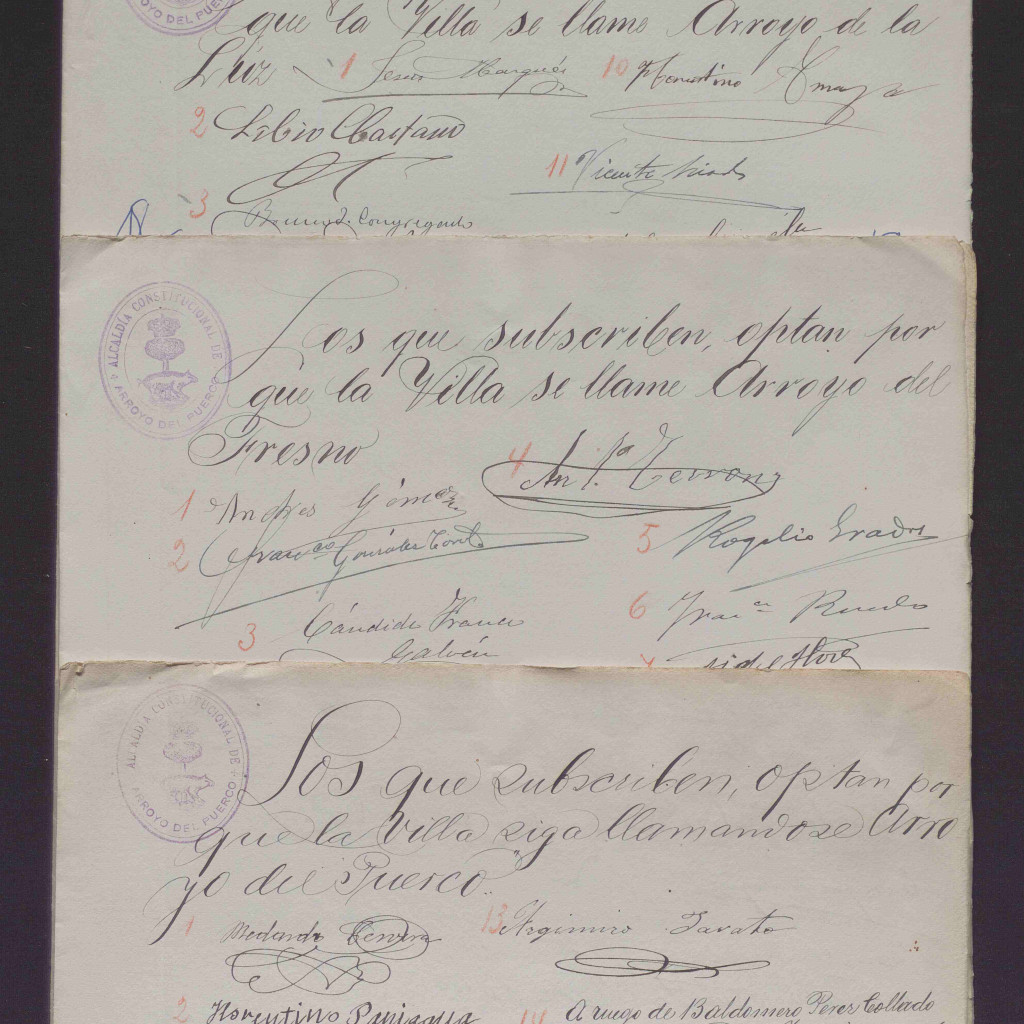 ARROYO DEL PUERCO
que la Villa se llame Arroyo de la
Luz
1 Jesus Marqués
10 Florentino Amaya
2 Libio Chastano
11 Vicente
3
Congregado
ALCALDÍA CONSTITUCIONAL DE
ARROYO DEL PUERCO
Los que subscriben, optan por
que la Villa se llame Arroyo del
Fresno
1 Andres Gómez
4 Terrona
2 Franco González
5 Rogelio Grados
3 Cándido Franco
Galván
6 Franco
ALCALDÍA CONSTITUCIONAL DE
ARROYO DEL PUERCO
Los que subscriben, optan por
que la Villa siga llamandose Arro
yo del "Puerco".
1 Medardo Cervera
13 Argimiro Tavato
2 Florentino
A ruego de Baldomero Perez Collado